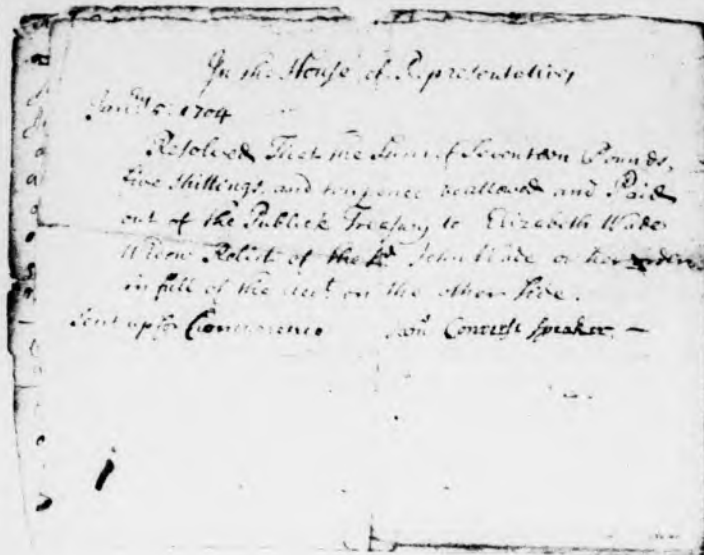 In the House of Representatives
Janry 5: 1704
Resolved That the Sum of Seventeen Pounds,
five shillings, and ten pence be allowed and Paid
out of the Publick Treasury to Elizabeth Wade
Widow Relict of the sd John Wade or her order
in full of the acct on the other side.
Sent up for Concurrence Converse Speaker. —